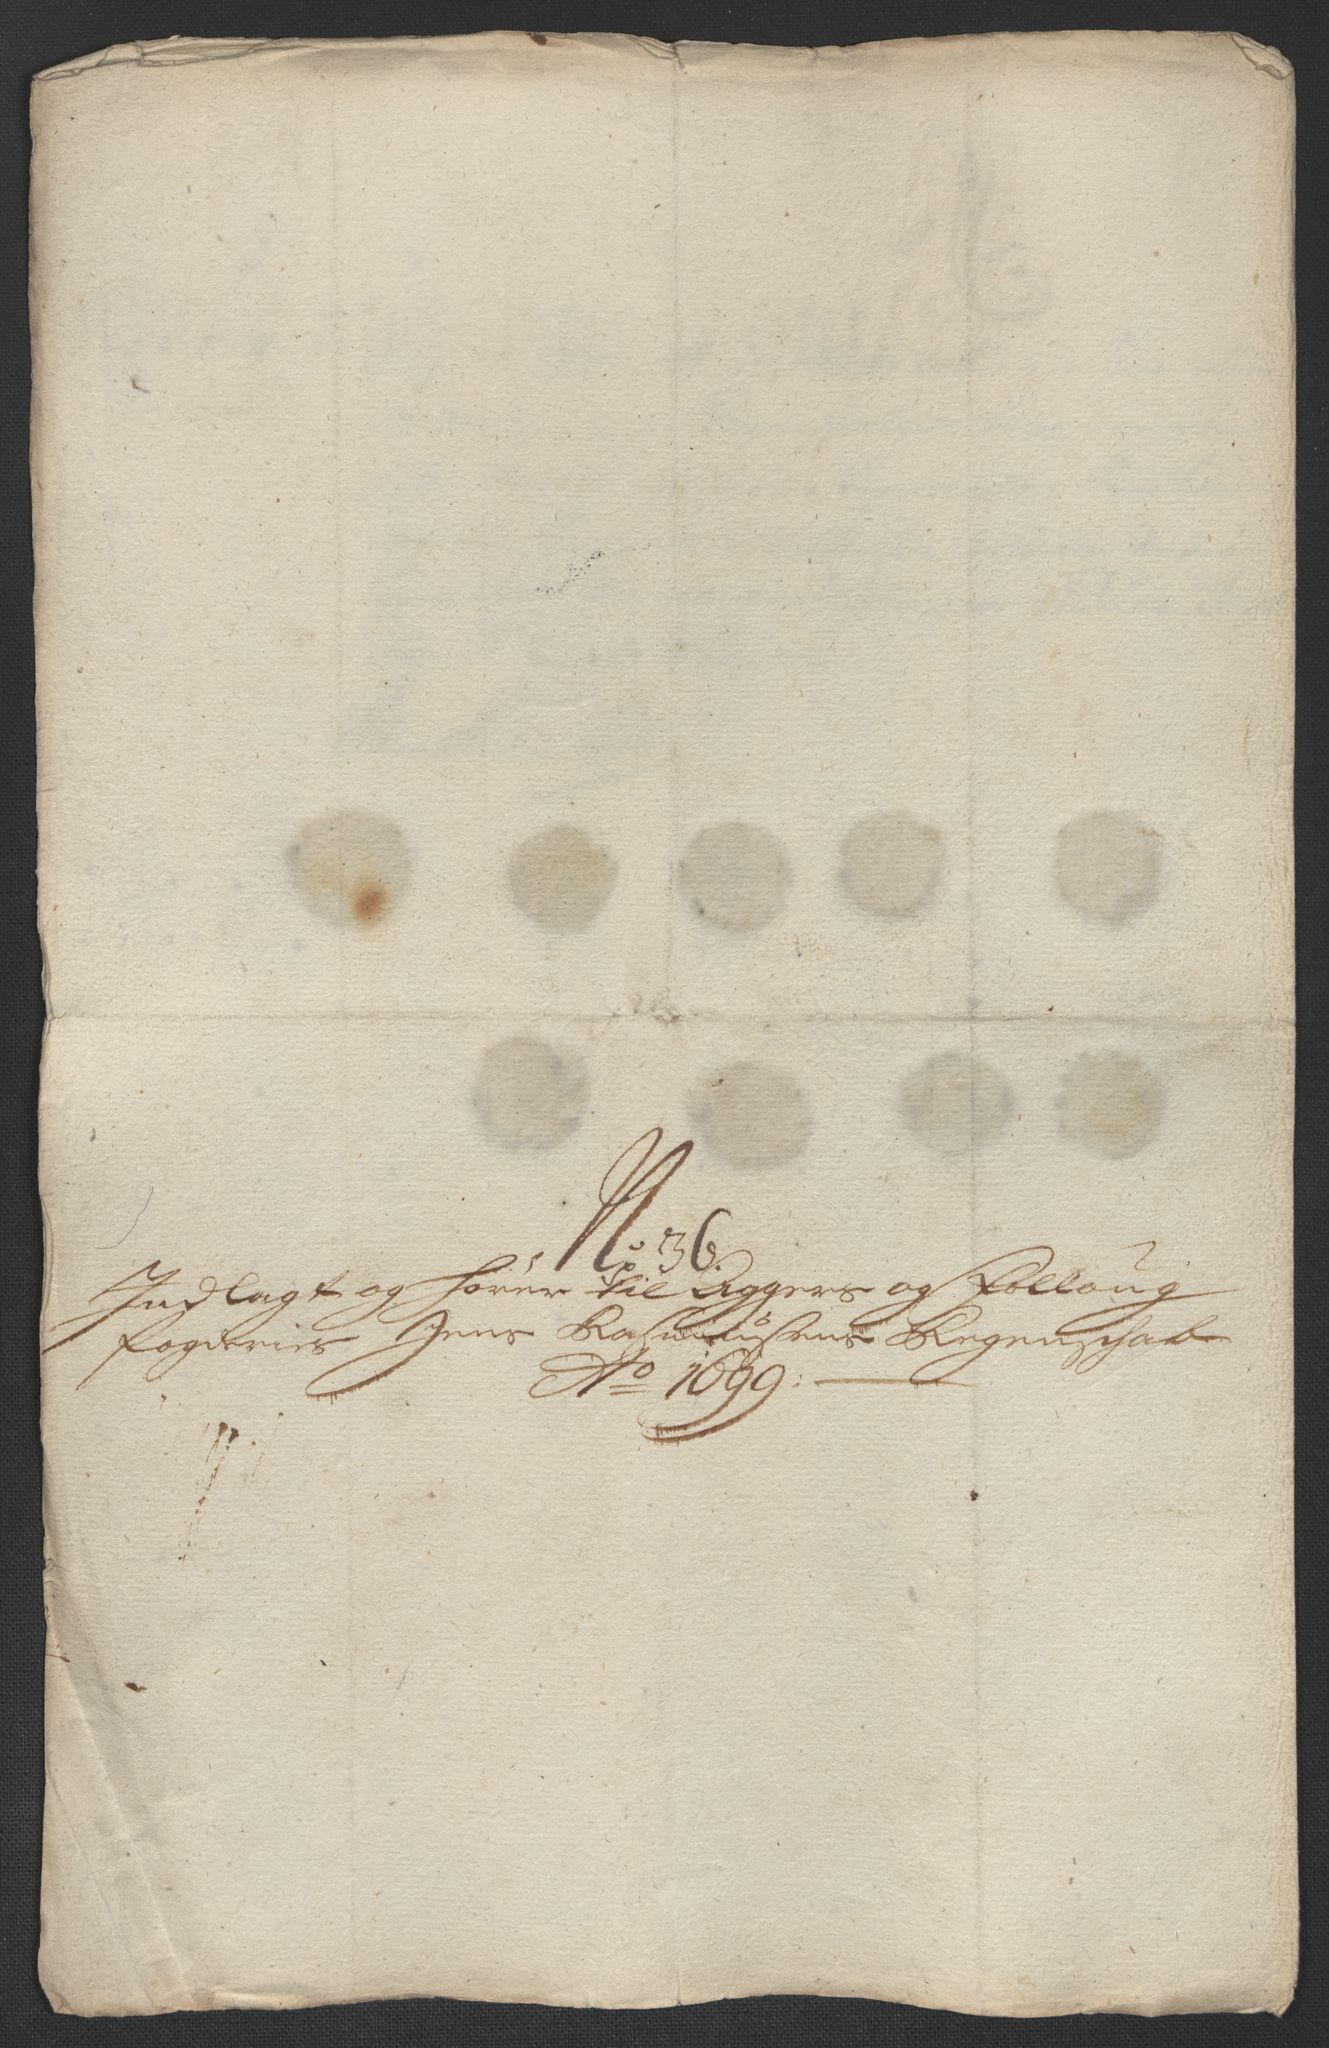 No: 36.
Indlagt og hörer til Aggers og Folloug
fogderies Jens Rasmusens Regenschab
Ao 1699: